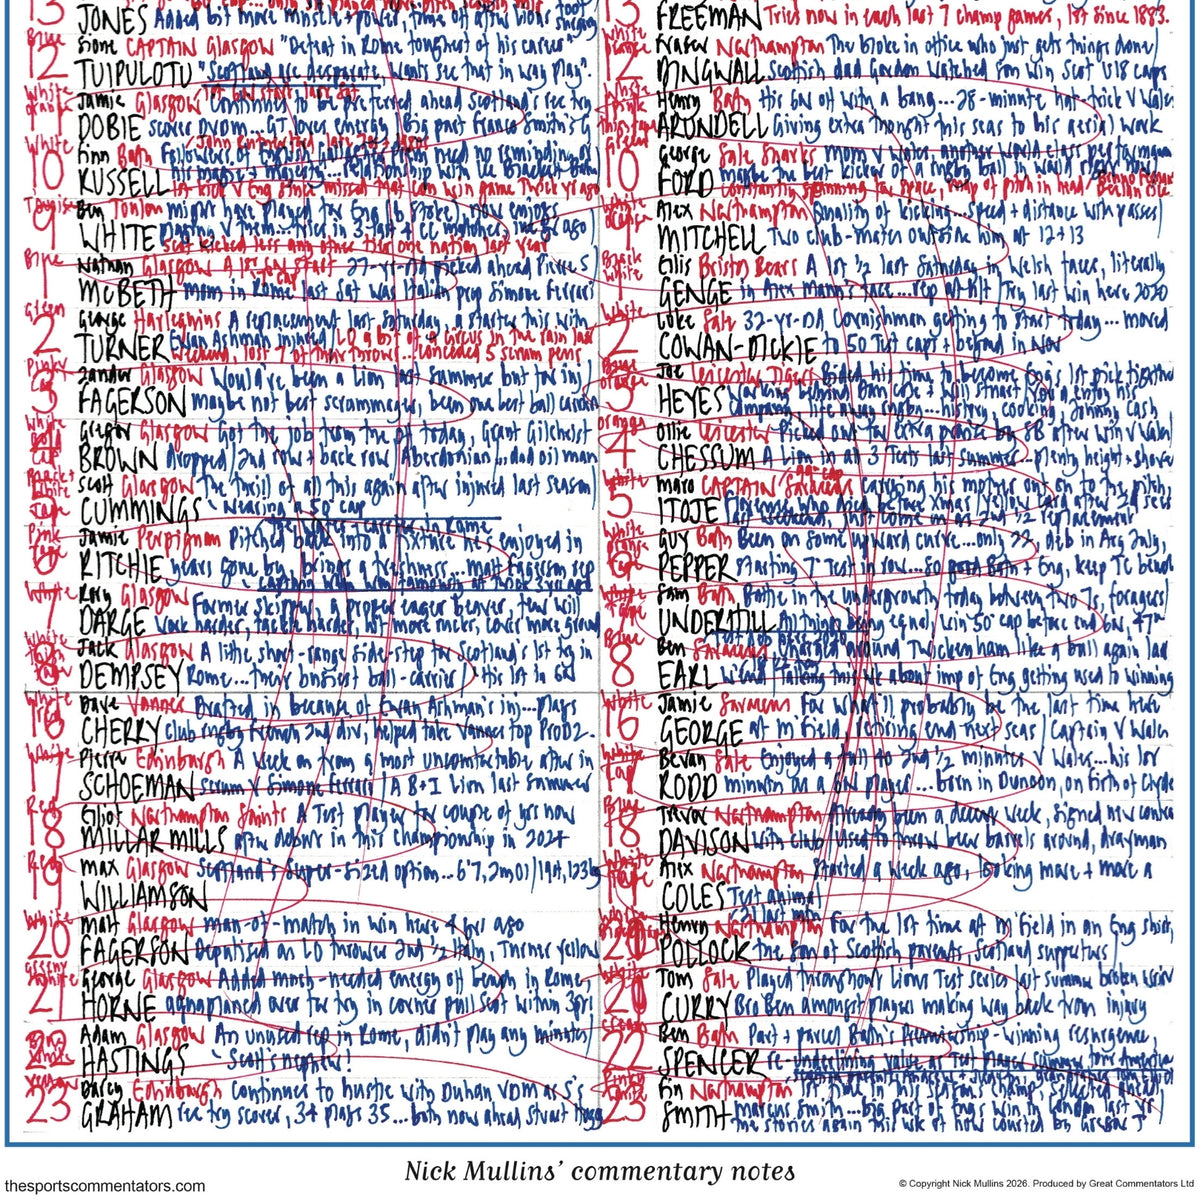 13 JONES Added bit more muscle + power, time off after Lions foot surgery
Blue 12 Sione CAPTAIN Glasgow "Defeat in Rome toughest of his career"
TUIPULOTU "Scotland are desperate, wants see that in way play".
White orange Jamie Glasgow 1st GN start last Sat Continues to be preferred ahead Scotland's rec try
DOBIE scorer DVDM...GT loves energy Big part Franco Smith's G
White 10 Finn Bath Followers of English need no reminding of
RUSSELL his magic + majesty...relationship with
9 Ben Toulon might have played for Eng (b Stoke), now enjoys
WHITE playing v them...tries in 3 last 4 CC matches
Scot kicked less any other tier one nation last year
Blue 1 Nathan Glasgow A 1st 6N start 27-yr-old picked ahead Pierre S
McBETH mom in Rome last Sat was Italian prop Simone Ferrari
Green 2 George Harlequins A replacement last Saturday, a starter this with
TURNER Ewan Ashman injured / LO a bit of a circus in the rain last
weekend, lost 7 of their throws...conceded 5 scrum pens
Pink cap 3 Zander Glasgow Would've been a Lion last summer but for inj
FAGERSON maybe not best scrummager, been one best ball carriers
White gold 4 Gregor Glasgow Got the job from the off today, Grant Gilchrist
BROWN dropped / 2nd row + back row / Aberdonian / ...dad oil man
Black + White Tape 5 Scott Glasgow The thrill of all this again after injured last season
CUMMINGS Wearing a 50 cap
Pink Tape 6 Jamie Perpignan Pitched back into a fixture he's enjoyed in
RITCHIE years gone by, brings a freshness...Matt Fagerson rep
Captain when won
White 7 Rory Glasgow Former skipper, a proper eager beaver, few will
DARGE work harder, tackle harder, hit more rucks, cover more ground
White 8 Jack Glasgow A lithe, short-range side-step for Scotland's 1st try in
DEMPSEY Rome...their busiest ball-carrier / His 1st in 6N
White Red 16 Dave Vannes Drafted in because of Ewan Ashman's inj...plays
CHERRY club rugby French 2nd div, helped take Vannes top ProD2.
White 17 Pierre Edinburgh A week on from a most uncomfortable after in
SCHOEMAN scrum v Simone Ferrari / A B+I Lion last summer
Red 18 Elliot Northampton Saints A Test player for couple of yrs now
MILLAR MILLS after debut in this Championship in 2024
Red 19 Max Glasgow Scotland's super-sized option...6'7, 2m01 / 19st, 123kg
WILLIAMSON
White 20 Matt Glasgow man-of-match in win here 4 yrs ago
FAGERSON Deputised as LO thrower 2nd ½ Italy, Turner yellow
Green White 21 George Glasgow Added much-needed energy off bench in Rome,
HORNE aquaplaned over for try in corner pull Scot within 3pts
Blue White 22 Adam Glasgow An unused rep in Rome, didn't play any minutes /
HASTINGS Scott's nephew!
Yellow 23 Darcy Edinburgh Continues to hustle with Duhan VDM as S's
GRAHAM rec try scorer, 34 plays 35...both now ahead Stuart Hogg
13 FREEMAN Tries now in each last 7 champ games, 1st since 1883.
White orange 12 Fraser Northampton The bloke in office who just gets things done /
DINGWALL Scottish dad Gordon Watched son win Scot U18 caps
White pink Henry Bath His 6N off with a bang...28-minute hat-trick v Wales
ARUNDELL Giving extra thought this seas to his aerial work
Green 10 George Sale Sharks Mom v Wales another world class performance
FORD maybe the best kicker of a rugby ball in world
constantly scanning for space, map of pitch in head
White orange 9 Alex Northampton Quality of kicking...speed + distance with passes /
MITCHELL Two club-mates outside him at 12+13
Black White 1 Ellis Bristol Bears A 1st ½ last Saturday in Welsh faces, literally
GENGE in Alex Mann's face...rep at HT / Try last win here 2020
White 2 Luke Sale 32-yr-old Cornishman getting to start today...moved
COWAN-DICKIE to 50 Test caps + beyond in Nov
Blue orange 3 Joe Leicester Tigers Bided his time to become Eng's 1st pick tighthead
HEYES Working behind Dan Cole + Will Stuart / You'd enjoy his
company, life away rugby...history, cooking, Johnny Cash
orange 4 Ollie Leicester Picked out for extra praise by SB after win v Wales
CHESSUM A Lion in all 3 Tests last summer...plenty height + shove
White 5 Maro CAPTAIN Saracens 100 cap carrying his mother out on to the pitch
ITOJE Florence who died before Xmas / Yellow card after 21 secs
last weekend, just come in as 2nd ½ replacement
White orange Tape 6 Guy Bath Been on some upward curve...only 22, deb in Arg July,
PEPPER starting 7 Test in row...so good Bath + Eng, keep TC bench
White 7 Sam Bath Battle in the undergrowth today between two 7s, foragers
UNDERHILL All things being equal win 50 cap before end 6N, 47th
Blue 8 Ben Saracens Charged around Twickenham like a ball again last
EARL w'end / Talking this wk about imp of Eng getting used to winning
White 16 Jamie Saracens For what'll probably be the last time here
GEORGE at M'field, retiring end next seas / Captain v Wales
White Cap 17 Bevan Sale Enjoyed a full to 2nd ½ minutes v Wales...his 1st
RODD minutes as a 6N player...born in Dunoon, on Firth of Clyde
Blue 18 Trevor Northampton Already been a decent week, signed new contract
DAVISON with club Used to throw beer barrels around, drayman
White Tape 19 Alex Northampton Started a week ago, looking more + more a
COLES Test animal
White 20 Henry Northampton (21 last mth) For the 1st time at M'field in an Eng shirt,
POLLOCK the son of Scottish parents, Scotland supporters
White 20 Tom Sale Played throughout Lions Test series last summer broken wrist
CURRY Bro Ben amongst players making way back from injury
22 Ben Bath Part + parcel Bath's Premiership-winning resurgence,
SPENCER re-underlining value as Test player summer tour Argentina
23 Fin Northampton 1st time in this season's champ, selected ahead
SMITH Marcus Smith...big part of Eng's win in London last yr
the stories again this wk of how courted by Gregor T
Nick Mullins' commentary notes
thesportscommentators.com
© Copyright Nick Mullins 2026. Produced by Great Commentators Ltd